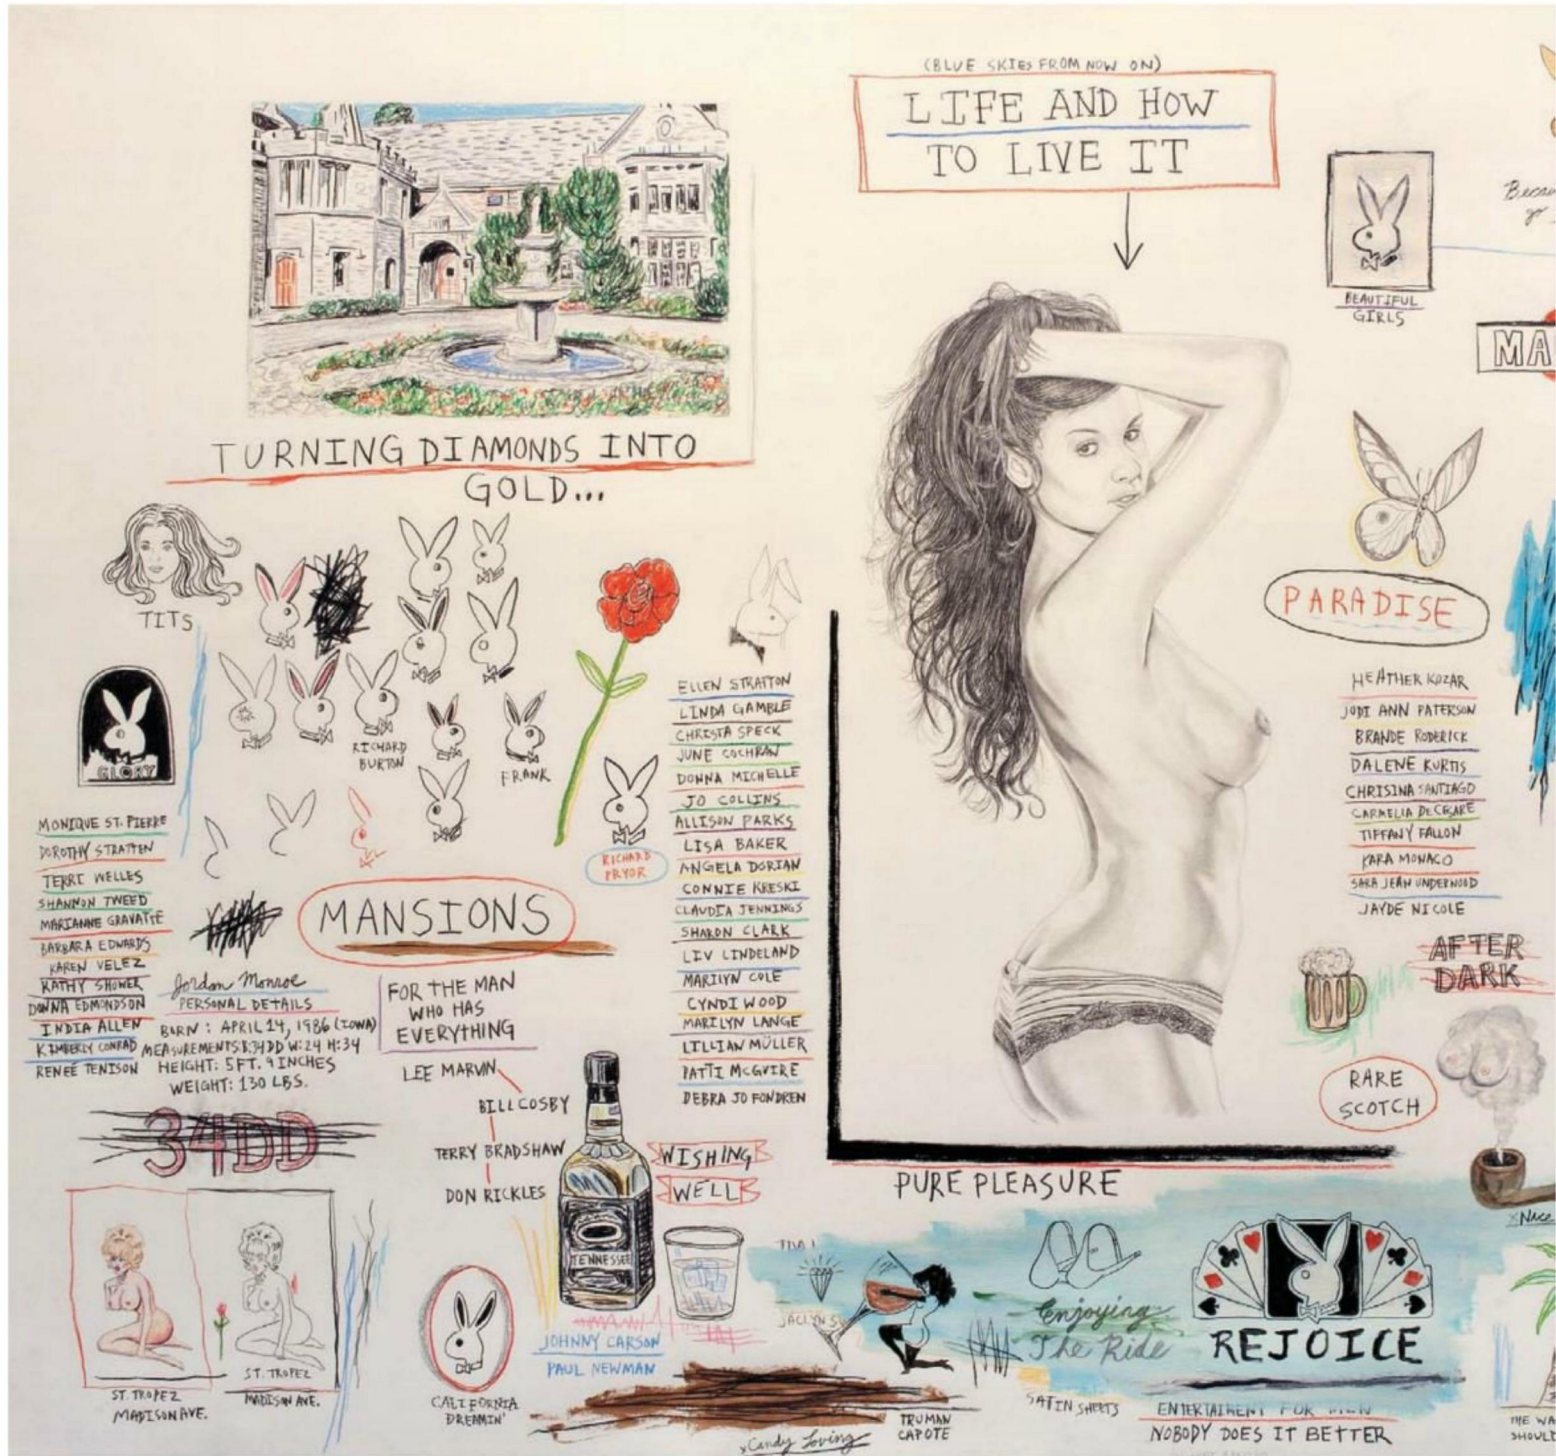 (BLUE SKIES FROM NOW ON)
LIFE AND HOW
TO LIVE IT
TURNING DIAMONDS INTO
GOLD...
TITS
GLORY
RICHARD
BURTON
FRANK
RICHARD
PRYOR
MONIQUE ST. PIERRE
DOROTHY STRATTEN
TERRI WELLES
SHANNON TWEED
MARIANNE GRAVATTE
BARBARA EDWARDS
KAREN VELEZ
KATHY SHOWER
DONNA EDMONDSON
INDIA ALLEN
KIMBERLY CONRAD
RENEÉ TENISON
MANSIONS
Jordan Monroe
PERSONAL DETAILS
BORN: APRIL 14, 1986 (IOWA)
MEASUREMENTS B:34DD W:24 H:34
HEIGHT: 5FT. 9 INCHES
WEIGHT: 130 LBS.
34DD
FOR THE MAN
WHO HAS
EVERYTHING
LEE MARVIN
BILL COSBY
TERRY BRADSHAW
DON RICKLES
ELLEN STRATTON
LINDA GAMBLE
CHRISTA SPECK
JUNE COCHRAN
DONNA MICHELLE
JO COLLINS
ALLISON PARKS
LISA BAKER
ANGELA DORIAN
CONNIE KRESKI
CLAUDIA JENNINGS
SHARON CLARK
LIV LINDELAND
MARILYN COLE
CYNDI WOOD
MARILYN LANGE
LILLIAN MÜLLER
PATTI McGUIRE
DEBRA JO FONDREN
WISHING
WELL
TENNESSEE
JOHNNY CARSON
PAUL NEWMAN
ST. TROPEZ
MADISON AVE.
ST. TROPEZ
MADISON AVE.
CALIFORNIA
DREAMIN'
xCandy Loving
TRUMAN
CAPOTE
PURE PLEASURE
Enjoying
The Ride
SATIN SHEETS
REJOICE
ENTERTAINMENT FOR MEN
NOBODY DOES IT BETTER
BEAUTIFUL
GIRLS
MA
PARADISE
HEATHER KOZAR
JODI ANN PATERSON
BRANDE RODERICK
DALENE KURTIS
CHRISINA SANTIAGO
CARMELLA DECESARE
TIFFANY FALLON
KARA MONACO
SARA JEAN UNDERWOOD
JAYDE NICOLE
AFTER
DARK
RARE
SCOTCH
xNice
THE WA
SHOULD